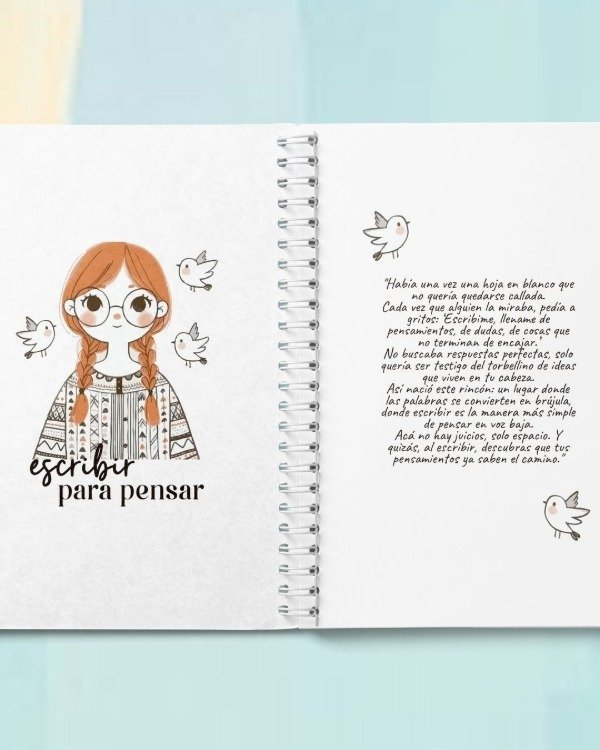 escribir
para pensar
"Había una vez una hoja en blanco que
no quería quedarse callada.
Cada vez que alguien la miraba, pedía a
gritos: 'Escribime, llename de
pensamientos, de dudas, de cosas que
no terminan de encajar.'
No buscaba respuestas perfectas, solo
quería ser testigo del torbellino de ideas
que viven en tu cabeza.
Así nació este rincón: un lugar donde
las palabras se convierten en brújula,
donde escribir es la manera más simple
de pensar en voz baja.
Acá no hay juicios, solo espacio. Y
quizás, al escribir, descubras que tus
pensamientos ya saben el camino."